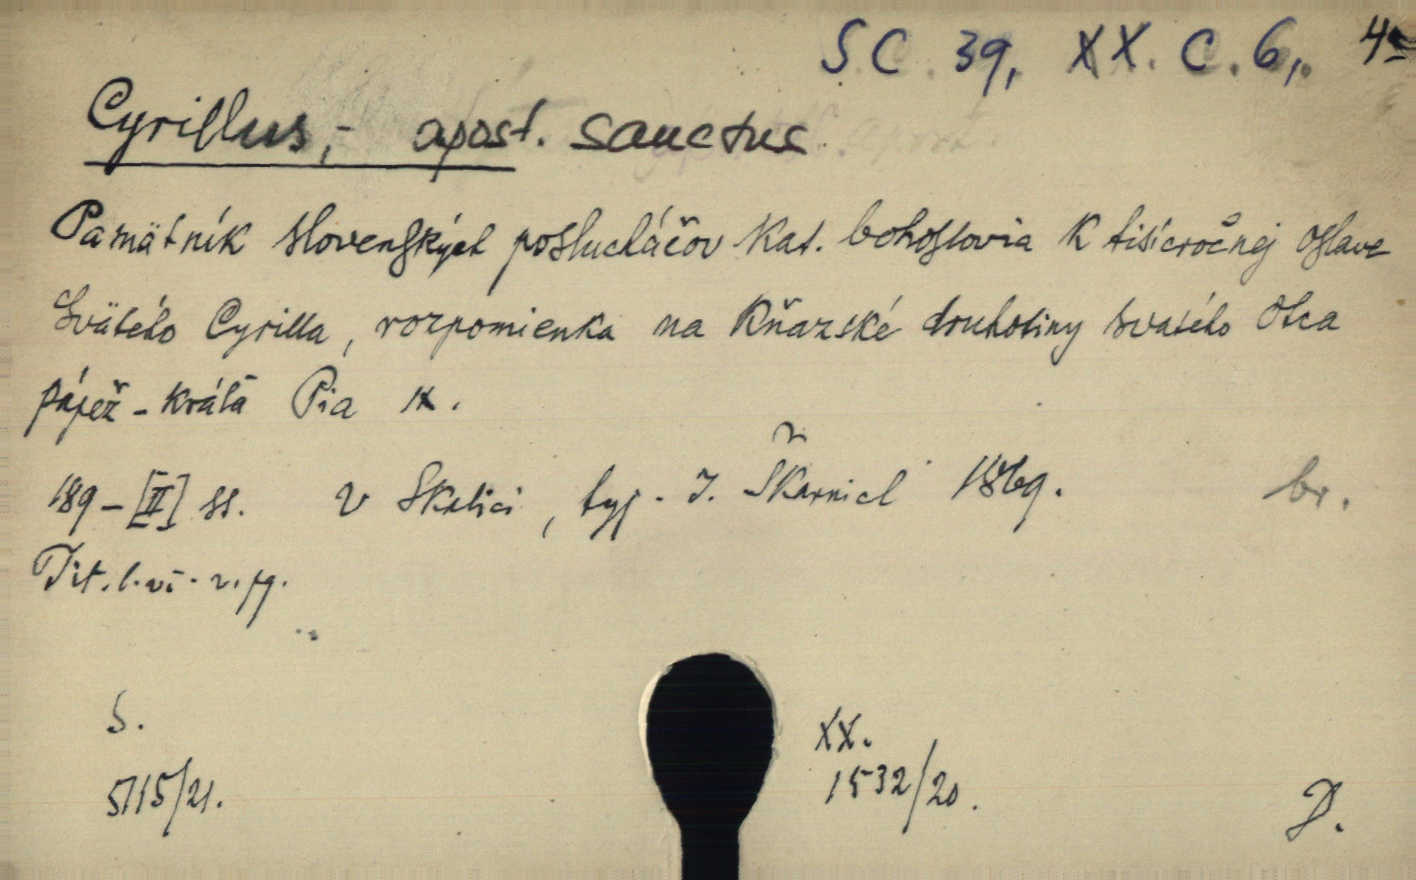 S.C. 39, XX. C. 6,. 4°
Cyrillus, - apost. sanctus
Pamätník slovenských poslucháčov kat. bohoslovia k tisícročnej oslave
Svätého Cyrilla, rozpomienka na kňazské druhotiny svatého Otca
pápež-kráľa Pia IX.
189-[II] ss. V Skalici, typ. J. Škarnicl 1869. br.
Tit. l. vi. v. pg.
S. XX.
5115/21. 1532/20. D.